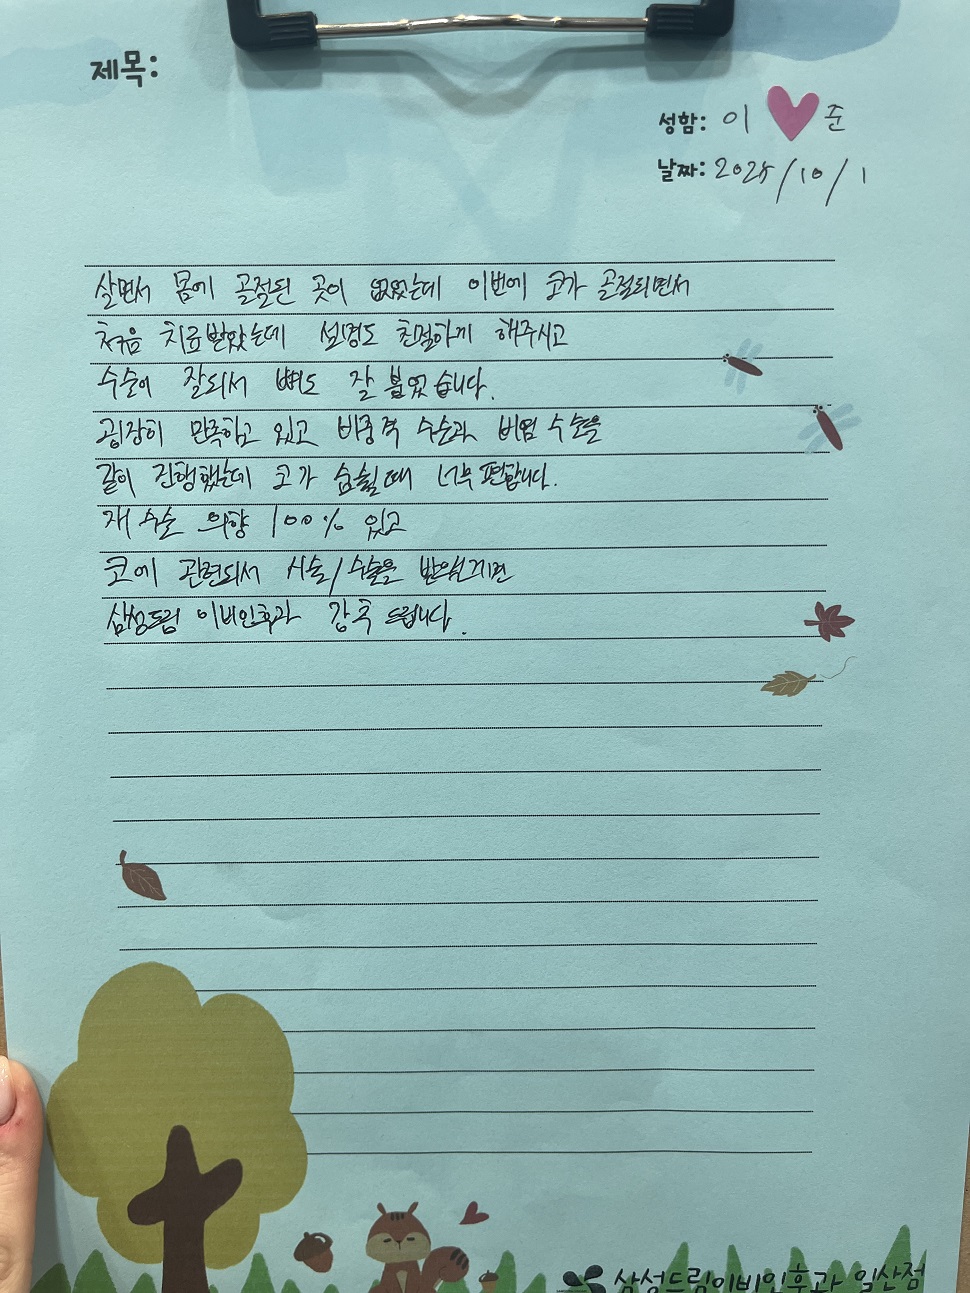 제목:
성함: 이 준
날짜: 2025/10/1
살면서 몸에 골절된 곳이 없었는데 이번에 코가 골절되면서
처음 치료받았는데 설명도 친절하게 해주시고
수술이 잘되서 뼈도 잘 붙었습니다.
굉장히 만족하고 있고 비중격 수술과 비염 수술을
같이 진행했는데 코가 숨쉴때 너무 편합니다.
재수술 의향 100% 있고
코에 관련되서 시술/수술을 받으실거면
삼성드림 이비인후과 강추 드립니다.
삼성드림이비인후과 일산점